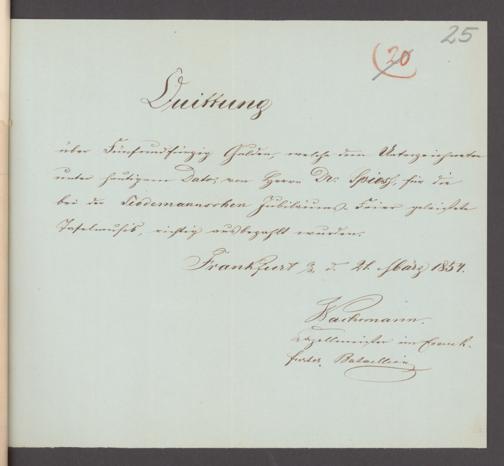 25
(20)
Quittung
über Fünfundfünfzig Gulden, welche dem Unterzeichneten
unter heutigem Dato, von Herrn Dr. Spiess, für die
bei der Tiedemannschen Jubiläums-Feier geleistete
Tafelmusik, richtig ausbezahlt wurden.
Frankfurt a. d. 21. März 1854.
Wachsmann.
Capellmeister im Frank-
furter Bataillon